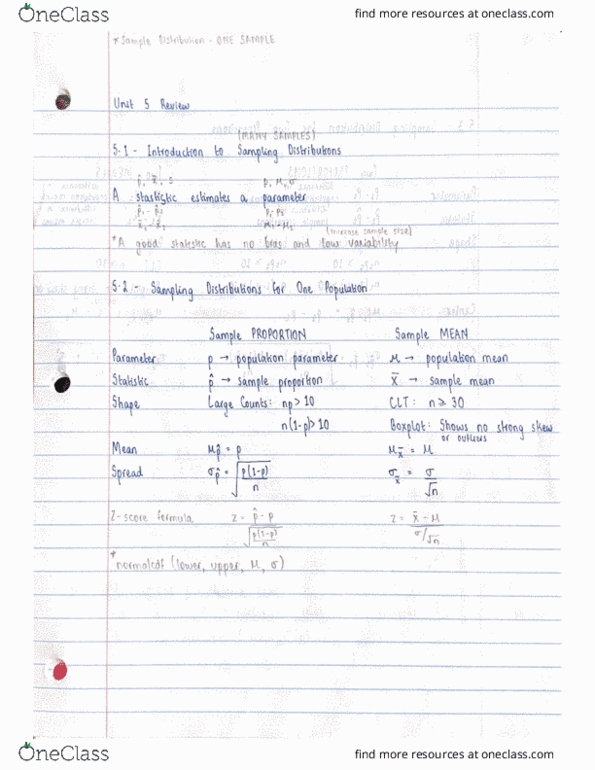 OneClass
find more resources at oneclass.com
* Sample Distribution - ONE SAMPLE
Unit 5 Review
(MANY SAMPLES)
5.1 - Introduction to Sampling Distributions
p̂, x̄, s p, μ, σ
A stastistic estimates a parameter
p̂₁ - p̂₂ p₁ - p₂
x̄₁ - x̄₂ μ₁ - μ₂
(increase sample size)
* A good statistic has no bias and low variability
5.2 - Sampling Distributions for One Population
Sample PROPORTION Sample MEAN
Parameter p → population parameter μ → population mean
Statistic p̂ → sample proportion x̄ → sample mean
Shape Large Counts: np > 10 CLT: n ≥ 30
n(1-p) > 10 Boxplot: Shows no strong skew
or outliers
Mean μp̂ = p μx̄ = μ
Spread σp̂ = √(p(1-p)/n) σx̄ = σ/√n
Z-score formula z = (p̂ - p)/√(p(1-p)/n) z = (x̄ - μ)/(σ/√n)
* normalcdf (lower, upper, μ, σ)
OneClass
find more resources at oneclass.com